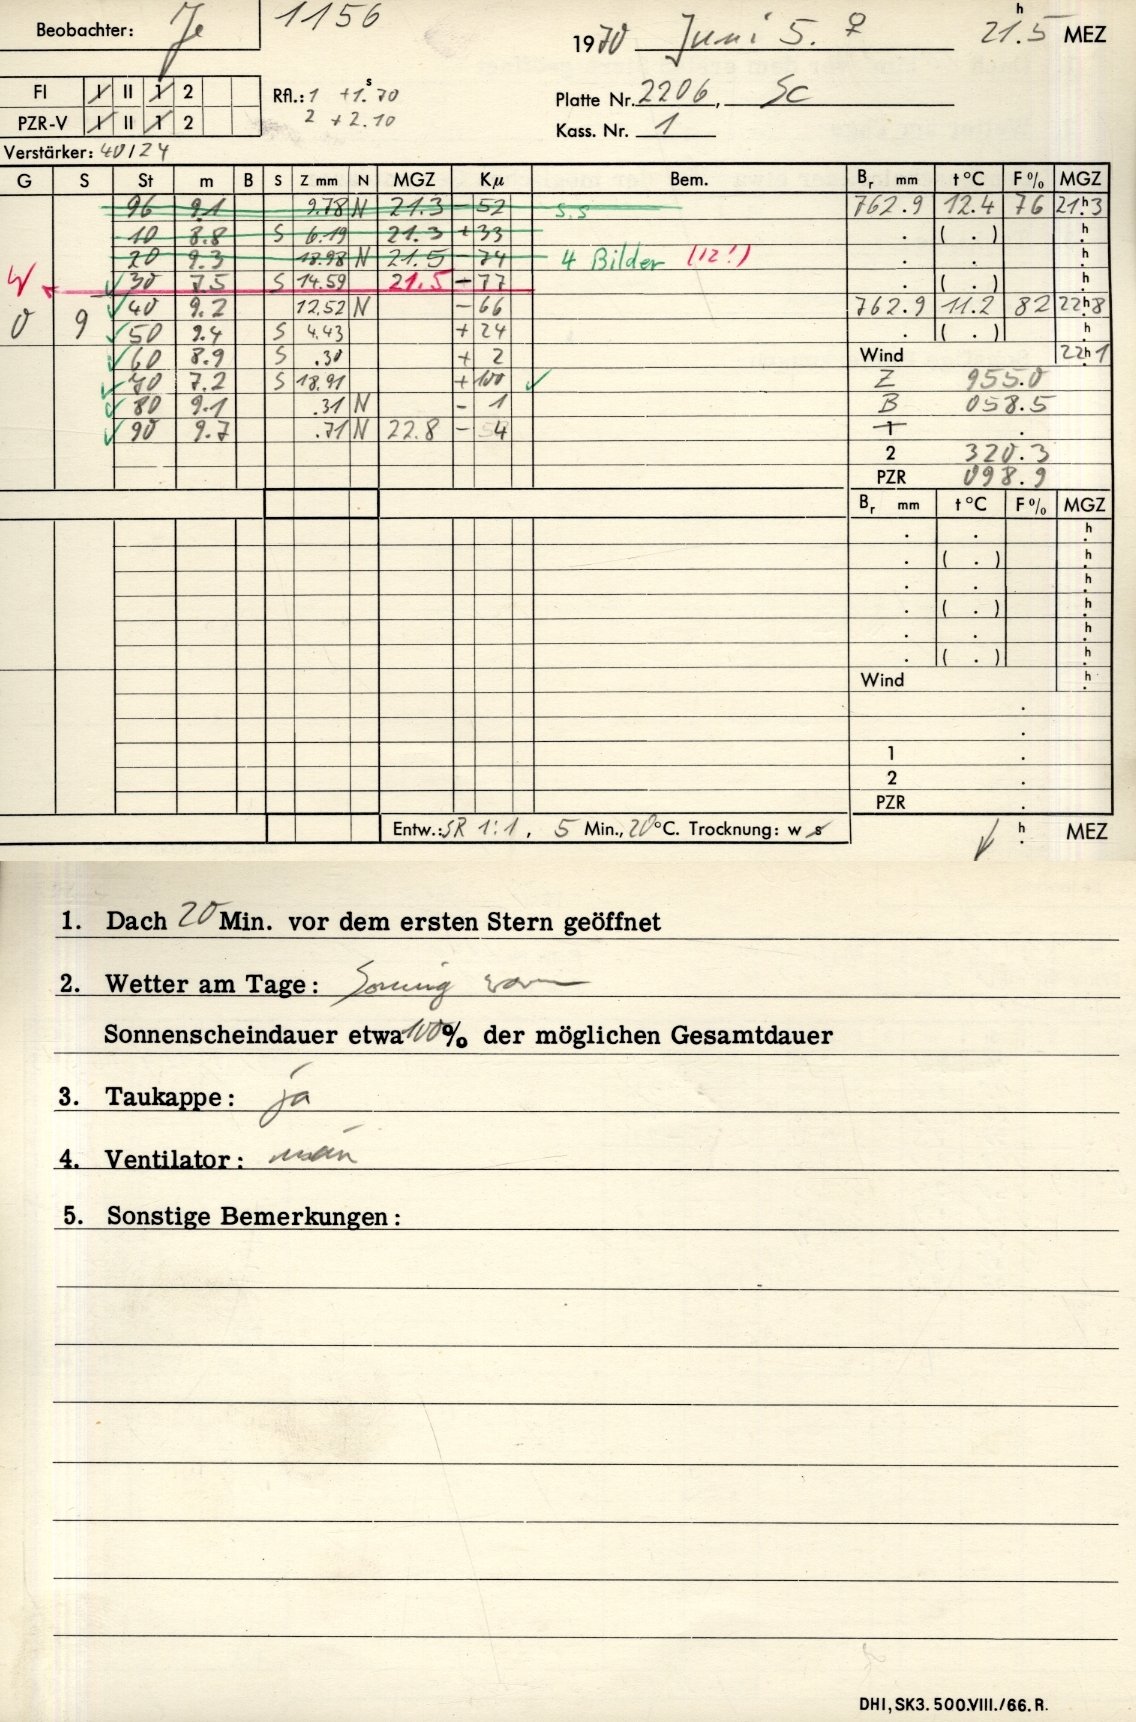 Beobachter: Je 1156
1970 Juni 5. ♀ 21.5 h MEZ
FI I II 1 2
PZR-V I II 1 2
Rfl.: 1 +1.70 s
2 +2.10
Platte Nr. 2206, Sc
Kass. Nr. 1
Verstärker: 40/24
G S St m B S Z mm N MGZ Kμ Bem. Br mm t °C F % MGZ
96 9.1 9.78 N 21.3 - 52 s.s 762.9 12.4 76 21h3
10 8.8 S 6.19 21.3 + 33 . ( . ) h
20 9.3 18.98 N 21.5 - 74 4 Bilder (12!) . . h
W 30 7.5 S 14.59 21.5 - 77 . ( . ) h
0 9 40 9.2 12.52 N - 66 762.9 11.2 82 22h8
50 9.4 S 4.43 + 24 . ( . ) h
60 8.9 S .30 + 2 Wind 22h1
70 7.2 S 18.91 + 100 Z 955.0
80 9.1 .31 N - 1 B 058.5
90 9.7 .71 N 22.8 - 4 1 .
2 320.3
PZR 098.9
Br mm t °C F % MGZ
. . h
. ( . ) h
. . h
. ( . ) h
. . h
. ( . ) h
Wind h
.
.
1 .
2 .
PZR .
Entw.: SR 1:1, 5 Min., 20 °C. Trocknung: w s h MEZ
1. Dach 20 Min. vor dem ersten Stern geöffnet
2. Wetter am Tage: Sonnig warm
Sonnenscheindauer etwa 100 % der möglichen Gesamtdauer
3. Taukappe: ja
4. Ventilator:
5. Sonstige Bemerkungen:
DHI, SK3. 500.VIII./66. R.